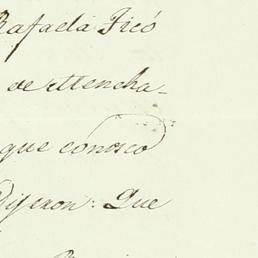 Rafaela Ficó
de Mencha-
que conosco
Dijeron: Que